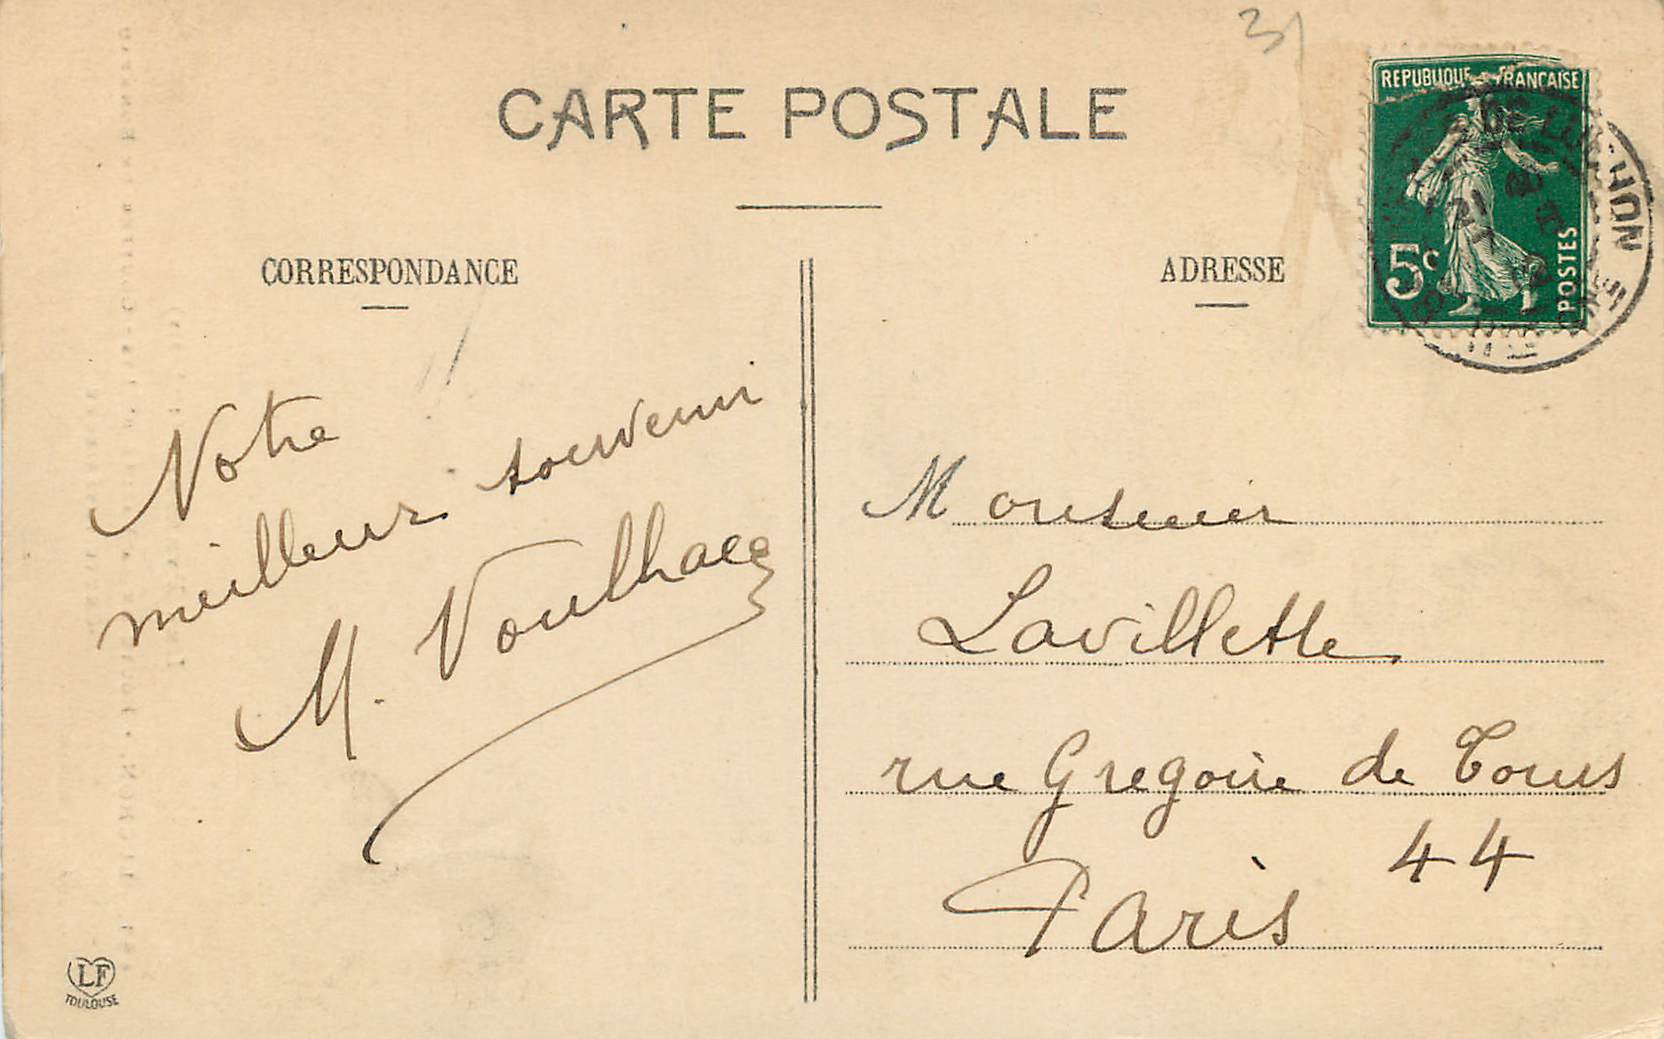 31
CARTE POSTALE
REPUBLIQUE FRANCAISE
5c
POSTES
DE LUCHON
CORRESPONDANCE
ADRESSE
Notre
meilleur souvenir
M.
Monsieur
Lavillette
rue Gregoire de Tours
44
Paris
LF
TOULOUSE